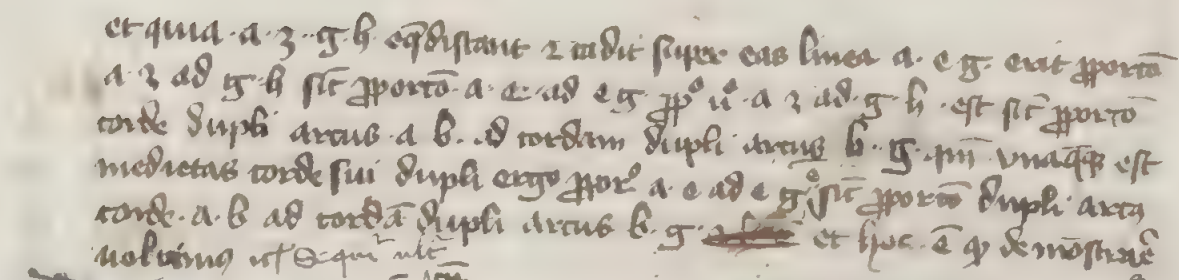 et quia ·a·z··g·h· eq̄distant ⁊ cadit super eas linea a·e g· erit ꝓportō
a·z ad g·h sic̄ ꝓportō·a·e·ad e g· ꝓpº uº·a z ad·g·h·est sic̄ ꝓportō
corde dupli arcus·a b· ad cordam dupli arcus b·g· qm̄ vnaqq̄ est
medietas corde sui dupli ergo ꝓporº a·e ad e g· sic̄ ꝓportō dupli arcꝰ
corde·a·b ad cordā dupli arcus b·g· et hoc·ē ꝙ demōstrarē
uoluimꝰ